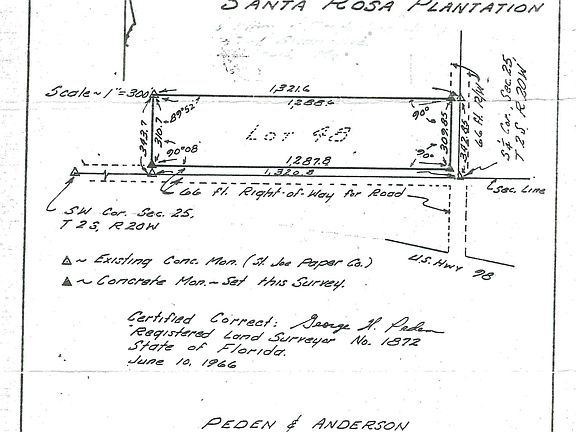 SANTA ROSA PLANTATION
Scale ~ 1"=300'
1,321.6
1,288.6
343.7
310.7
89°52'
90°08'
90°
90°
309.85
342.85
66 ft. R/W
S¼ Cor. Sec. 25
T2S, R20W
LOT 48
1,287.8
1,320.8
Sec. Line
66 Ft. Right-of-Way for Road
SW Cor. Sec. 25,
T2S, R20W
U.S. Hwy 98
~ Existing Conc. Mon. (St. Joe Paper Co.)
~ Concrete Mon. ~ Set this Survey.
Certified Correct: George H. Peden
Registered Land Surveyor No. 1872
State of Florida.
June 10, 1966
PEDEN & ANDERSON